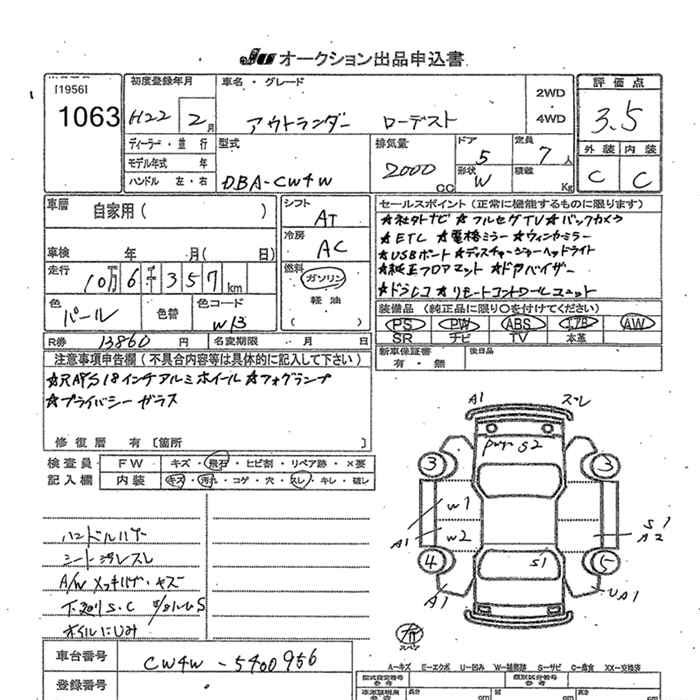 JU オークション出品申込書
[1956]
1063
初度登録年月
H22 2月
車名・グレード
アウトランダー ローデスト
2WD
・
4WD
評価点
3.5
ディーラー・並行
モデル年式 年
ハンドル 左・右
型式
DBA-CW4W
排気量
2000 CC
ドア
5
形状
W
定員
7人
積載
Kg
外装 内装
C C
車歴
自家用( )
車検 年 月( 日)
走行
10万6千357km
色
パール
色替
色コード
W13
R券 13860 円
名変期限 月 日
シフト
AT
冷房
AC
燃料
ガソリン
軽油
( )
セールスポイント(正常に機能するものに限ります)
★社外ナビ★フルセグTV★バックカメラ
★ETC★電格ミラー★ウィンカーミラー
★USBポート★ディスチャージヘッドライト
★純正フロアマット★ドアバイザー
★ドラレコ★リモートコントロールユニット
装備品(純正品に限り○を付けてください)
PS PW ABS エアB AW
SR ナビ TV 本革
新車保証書
有・無
後日品
注意事項申告欄(不具合内容等は具体的に記入して下さい)
★RAYS18インチアルミホイール★フォグランプ
★プライバシーガラス
修復歴 有[箇所 ]
検査員
記入欄
FW キズ・飛石・ヒビ割・リペア跡・×要
内装 キズ・汚れ・コゲ・穴・スレ・キレ・破レ
ハンドルハゲ
シート汚レスレ
A/W メッキハゲ・キズ
下廻りS・C
オイルにじみ
A1 スレ
S2
3 3
W1
W2
A1
S1
A2
4 5
S1
A1
UA1
スペア
A-キズ E-エクボ U-凹み W-補修跡 S-サビ C-腐食 XX-交換済
車台番号
CW4W-5400956
登録番号
型式指定番号
類別区分番号
参考
長さ
cm
幅
cm
高さ
cm